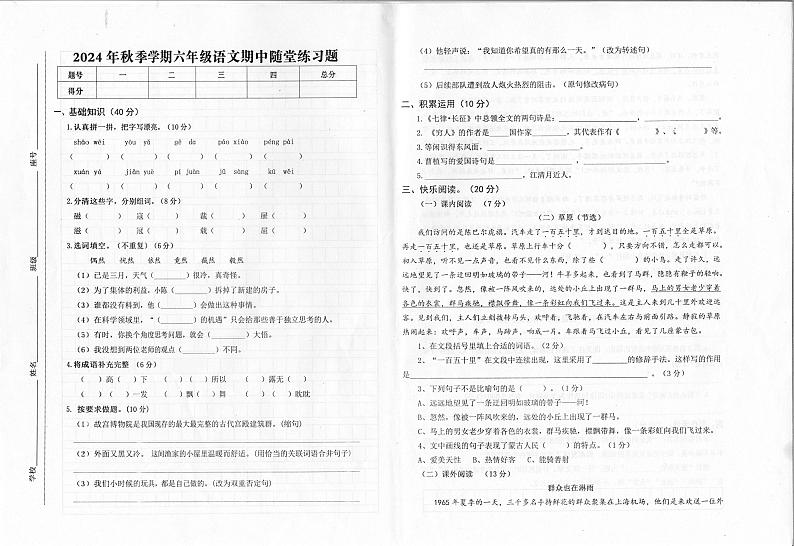 2024年秋季学期六年级语文期中随堂练习题
题号 一 二 三 四 总分
得分
一、基础知识(40分)
1.认真拼一拼，把字写漂亮。(10分)
shāo wēi yōu yǎ gē da páo xiào péng pài
( ) ( ) ( ) ( ) ( )
xuán yá jiān yuè pí juàn jǔ sàng kū què
( ) ( ) ( ) ( ) ( )
2.分清这些字，分别组词。(8分)
磁( ) 寇( ) 裁( ) 屉( )
滋( ) 冠( ) 载( ) 屡( )
3.选词填空。(不重复) (6分)
偶然 忧然 依然 竟然 截然 毅然
(1)已是三月，天气( )很冷，真奇怪。
(2)为了集体的利益，小陈( )拆掉了新建的房子。
(3)谁都没有料到，他( )会做出这种事情。
(4)在科学领域里，“( )的机遇”只会给那些善于独立思考的人。
(5)有时，你换个角度思考问题，就会( )大悟。
(6)我没想到两位老师的观点( )不同。
4.将成语补充完整 (6分)
( )高( )下 ( )( )所以 ( )露无( )
( )( )一发 ( )飘( )舞 ( )( )眈眈
5. 按要求做题。(10分)
(1)故宫博物院是我国现存的最大最完整的古代宫殿建筑群。(缩句)
(2)外面又黑又冷。 这间渔家的小屋里温暖而舒适。(用恰当的关联词语合并句子)
(3)我们小时候的玩具，都是自己做的。(改为双重否定句)
座号
班级
姓名
学校
(4)他轻声说：“我知道你希望真的有那么一天。”(改为转述句)
(5)后续部队遭到敌人炮火热烈的阻击。(原句修改病句)
二、积累运用(10分)
1.《七律•长征》中总领全文的两句诗是： ， 。
2.《穷人》的作者是 国作家 ，其代表作有《 》、《 》等。
3.等闲识得东风面， 。
4.曹植写的爱国诗句是 ， 。
5. ，江清月近人。
三、快乐阅读。(20分)
(一)课内阅读 (7分)
(二)草原(节选)
我们访问的是陈巴尔虎旗。汽车走了一百五十里，才到达目的地。一百五十里全是草原。
再走一百五十里，也还是草原。草原上行车十分( )，只要方向不错，怎么走都可以。
初入草原，听不见一点声音，也看不见什么东西，除了些( )的小鸟。走了许久，远
远地望见了一条迂回明如玻璃的带子——河！牛羊多起来，也看到了马群，隐隐有鞭子的轻响。
快了，快到了。忽然，像被一阵风吹来的，远处的小丘上出现了一群马，马上的男女老少穿着
各色的衣裳，群马疾驰，襟飘带舞，像一条彩虹向我们飞过来。这是主人来到几十里外欢迎远
客。见到我们，主人们立刻拨转马头，欢呼着，飞驰着，在汽车左右与前面引路。静寂的草原
热闹起来：欢呼声，车声，马蹄声，响成一片。车跟着马飞过小丘，看见了几座蒙古包。
1、在文段括号里填上合适的词语。(2分)
2、“一百五十里”在文段中连续出现，这里采用了 的修辞手法。这样写的作用
是 。(3分)
3、下列句子不是比喻句的是( )。(1分)
A、远远地望见了一条迂回明如玻璃的带子——河！
B、忽然，像被一阵风吹来的，远处的小丘上出现了一群马。
C、马上的男女老少穿着各色的衣裳，群马疾驰，襟飘带舞，像一条彩虹向我们飞过来。
4、文中画线的句子表现了蒙古人民( )的特点。(1分)
A、爱美天性 B、热情好客 C、能骑善射
(二)课外阅读 (13分)
群众也在淋雨
1965年夏季的一天，三千多名手持鲜花的群众聚集在上海机场，他们是来欢送一位外